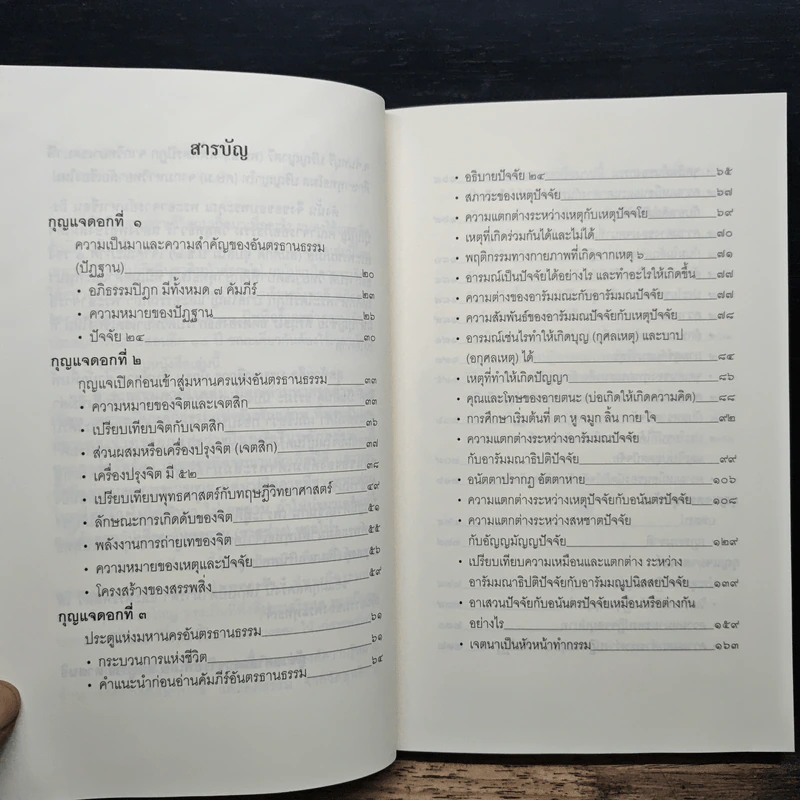 สารบัญ
กุญแจดอกที่ ๑
ความเป็นมาและความสำคัญของอันตรธานธรรม
(ปัฏฐาน) ๒๐
• อภิธรรมปิฎก มีทั้งหมด ๗ คัมภีร์ ๒๓
• ความหมายของปัฏฐาน ๒๖
• ปัจจัย ๒๔ ๓๐
กุญแจดอกที่ ๒
กุญแจเปิดก่อนเข้าสู่มหานครแห่งอันตรธานธรรม ๓๓
• ความหมายของจิตและเจตสิก ๓๓
• เปรียบเทียบจิตกับเจตสิก ๓๖
• ส่วนผสมหรือเครื่องปรุงจิต (เจตสิก) ๓๗
• เครื่องปรุงจิต มี ๕๒ ๓๘
• เปรียบเทียบพุทธศาสตร์กับทฤษฎีวิทยาศาสตร์ ๔๙
• ลักษณะการเกิดดับของจิต ๕๑
• พลังงานการถ่ายเทของจิต ๕๕
• ความหมายของเหตุและปัจจัย ๕๖
• โครงสร้างของสรรพสิ่ง ๕๙
กุญแจดอกที่ ๓ ๖๑
ประตูแห่งมหานครอันตรธานธรรม ๖๑
• กระบวนการแห่งชีวิต ๖๔
• คำแนะนำก่อนอ่านคัมภีร์อันตรธานธรรม
• อธิบายปัจจัย ๒๔ ๖๕
• สภาวะของเหตุปัจจัย ๖๗
• ความแตกต่างระหว่างเหตุกับเหตุปัจจโย ๖๙
• เหตุที่เกิดร่วมกันได้และไม่ได้ ๗๐
• พฤติกรรมทางกายภาพที่เกิดจากเหตุ ๖ ๗๑
• อารมณ์เป็นปัจจัยได้อย่างไร และทำอะไรให้เกิดขึ้น ๗๗
• ความต่างของอารัมมณะกับอารัมมณปัจจัย ๗๗
• ความสัมพันธ์ของอารัมมณปัจจัยกับเหตุปัจจัย ๗๘
• อารมณ์เช่นไรทำให้เกิดบุญ (กุศลเหตุ) และบาป
(อกุศลเหตุ) ได้ ๘๕
• เหตุที่ทำให้เกิดปัญญา ๘๖
• คุณและโทษของอายตนะ (บ่อเกิดให้เกิดความคิด) ๘๘
• การศึกษาเริ่มต้นที่ ตา หู จมูก ลิ้น กาย ใจ ๙๒
• ความแตกต่างระหว่างอารัมมณปัจจัย
กับอารัมมณาธิปติปัจจัย ๙๙
• อนัตตาปรากฏ อัตตาหาย ๑๐๖
• ความแตกต่างระหว่างเหตุปัจจัยกับอนันตรปัจจัย ๑๐๘
• ความแตกต่างระหว่างสหชาตปัจจัย
กับอัญญมัญญปัจจัย ๑๒๙
• เปรียบเทียบความเหมือนและแตกต่าง ระหว่าง
อารัมมณาธิปติปัจจัยกับอารัมมณูปนิสสยปัจจัย ๑๓๙
• อาเสวนปัจจัยกับอนันตรปัจจัยเหมือนหรือต่างกัน
อย่างไร ๑๕๙
• เจตนาเป็นหัวหน้าทำกรรม ๑๖๓